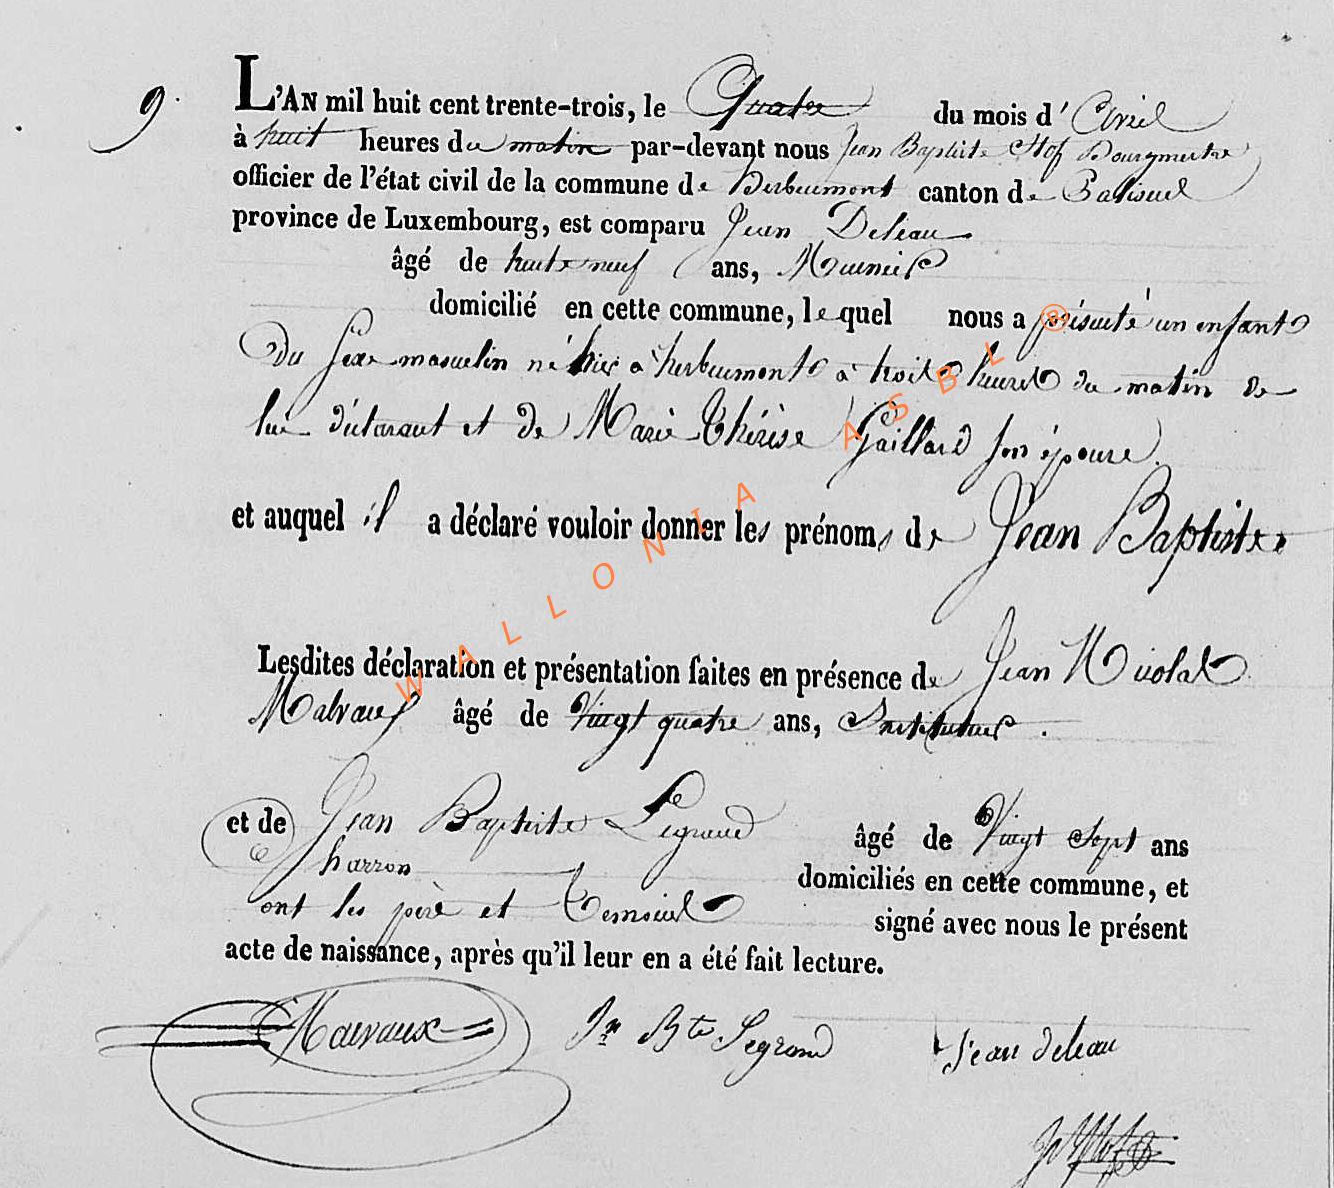 9.
L'AN mil huit cent trente-trois, le Quatre du mois d'Avril
à huit heures du matin par-devant nous Jean Baptiste Hof Bourgmestre
officier de l'état civil de la commune de herbeumont canton de Paliseul
province de Luxembourg, est comparu Jean Deleau
âgé de neuf ans, Meunier
domicilié en cette commune, lequel nous a présenté un enfant
Du sexe masculin né hier à herbeumont à trois heures du matin de
lui déclarant et de Marie Thérèse Gaillard son épouse.
et auquel il a déclaré vouloir donner les prénoms de Jean Baptiste
Lesdites déclaration et présentation faites en présence de Jean Nicolas
Malvaux âgé de Vingt quatre ans, Instituteur.
et de Jean Baptiste Legrand âgé de Vingt Sept ans
Charron domiciliés en cette commune, et
ont les père et temoins signé avec nous le présent
acte de naissance, après qu'il leur en a été fait lecture.
Malvaux Jn Bte Legrand Jean deleau
WALLONIA ASBL ®